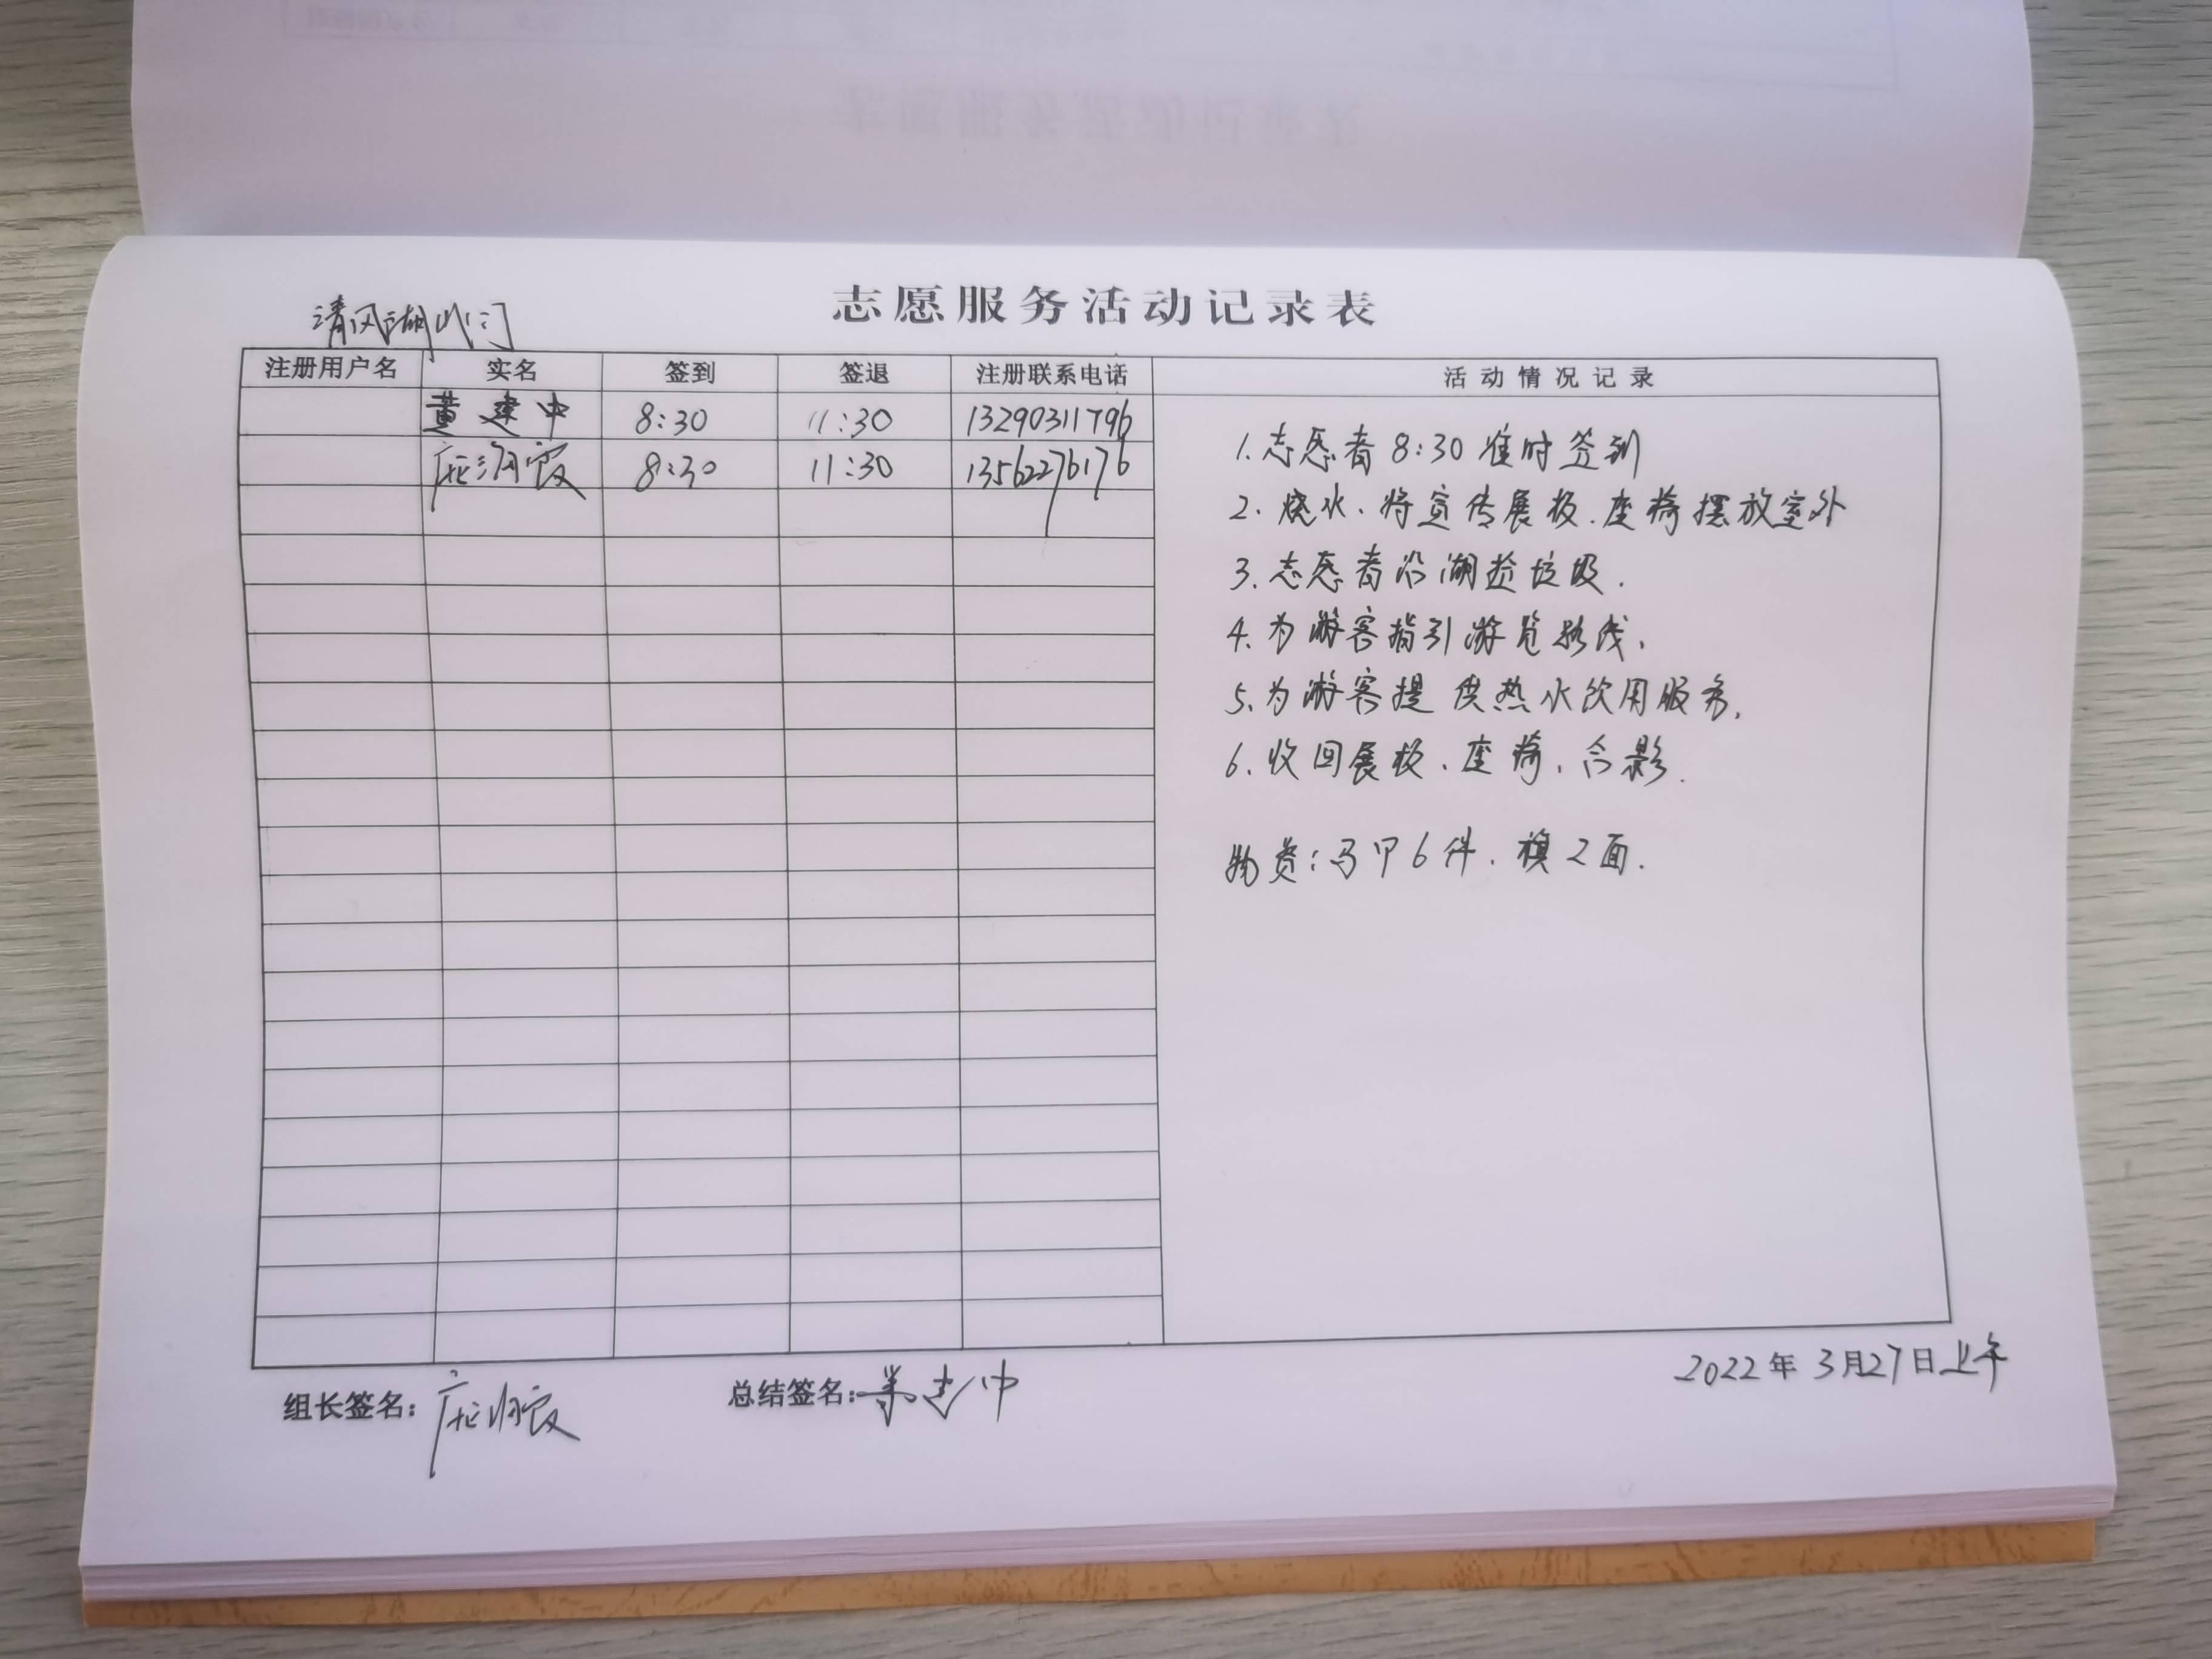 志愿服务活动记录表
清风湖北门
注册用户名 实名 签到 签退 注册联系电话 活动情况记录
黄建中 8:30 11:30 13290311796
8:30 11:30 13562276176
1.志愿者8:30准时签到
2.烧水、将宣传展板、座椅摆放室外
3.志愿者沿湖捡垃圾.
4.为游客指引游览路线.
5.为游客提供热水饮用服务.
6.收回展板、座椅、合影.
物资:马甲6件、旗2面.
2022年3月27日上午
组长签名: 总结签名: